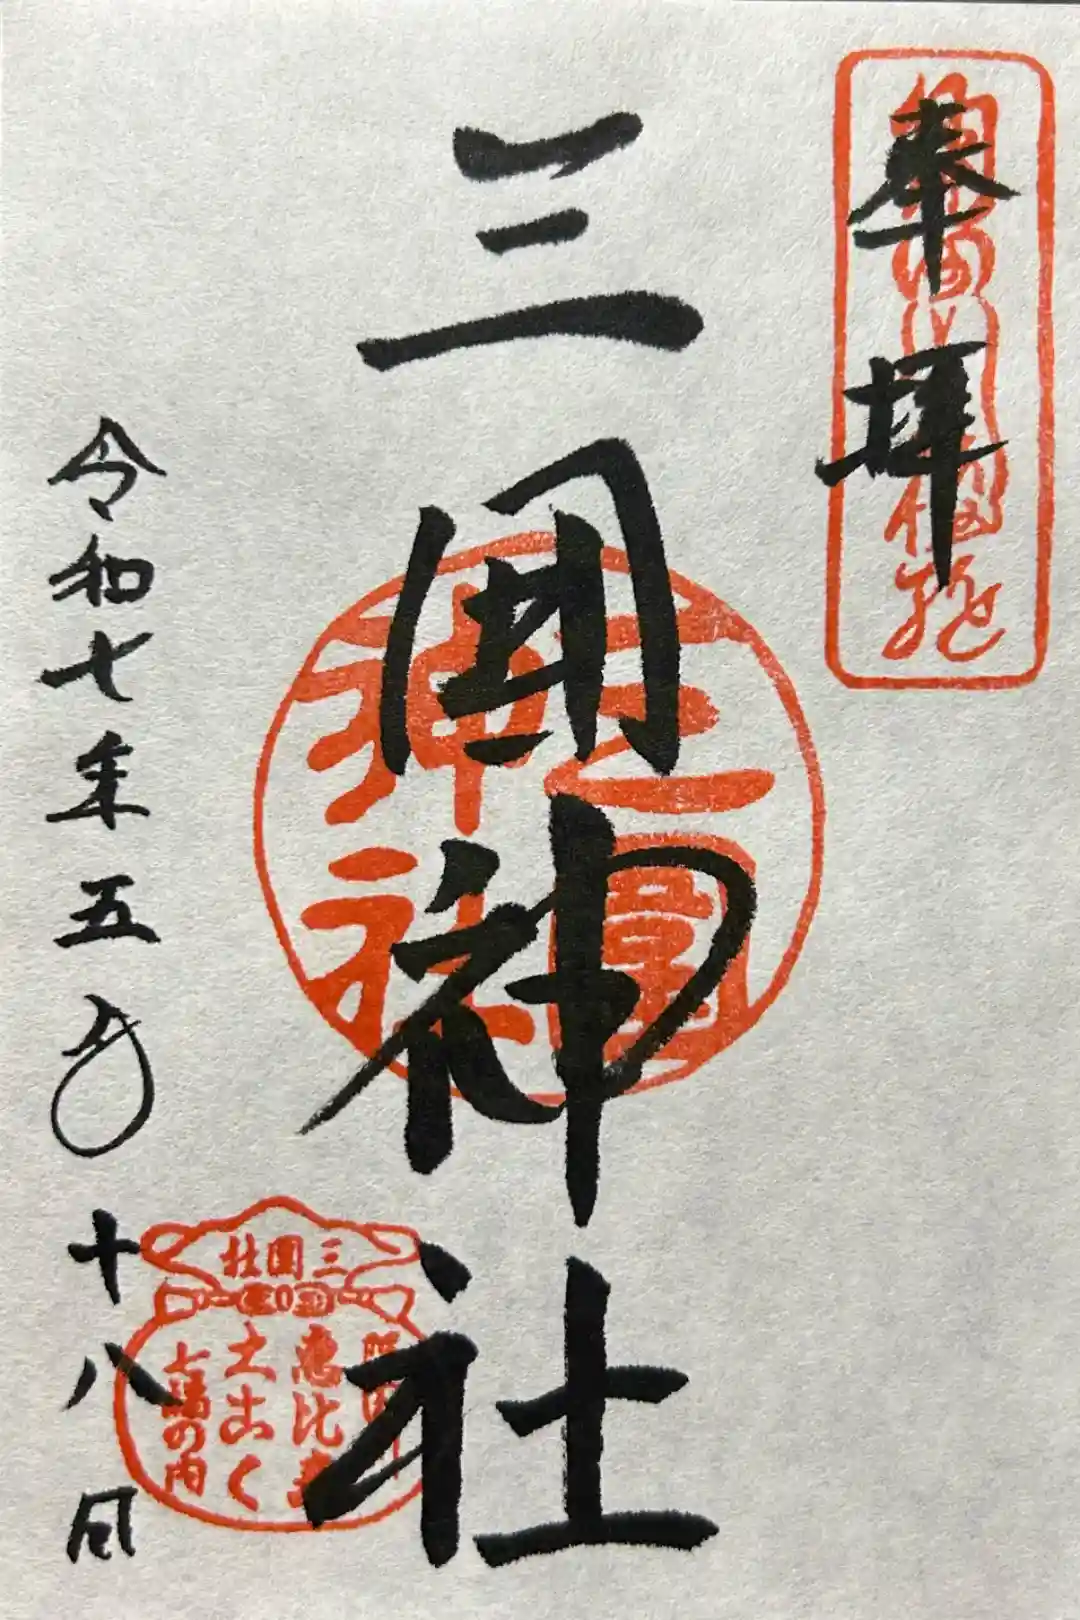 奉拝
三囲神社
三囲神社
令和七年五月十八日
三囲社
恵比寿
大こく
七福の内